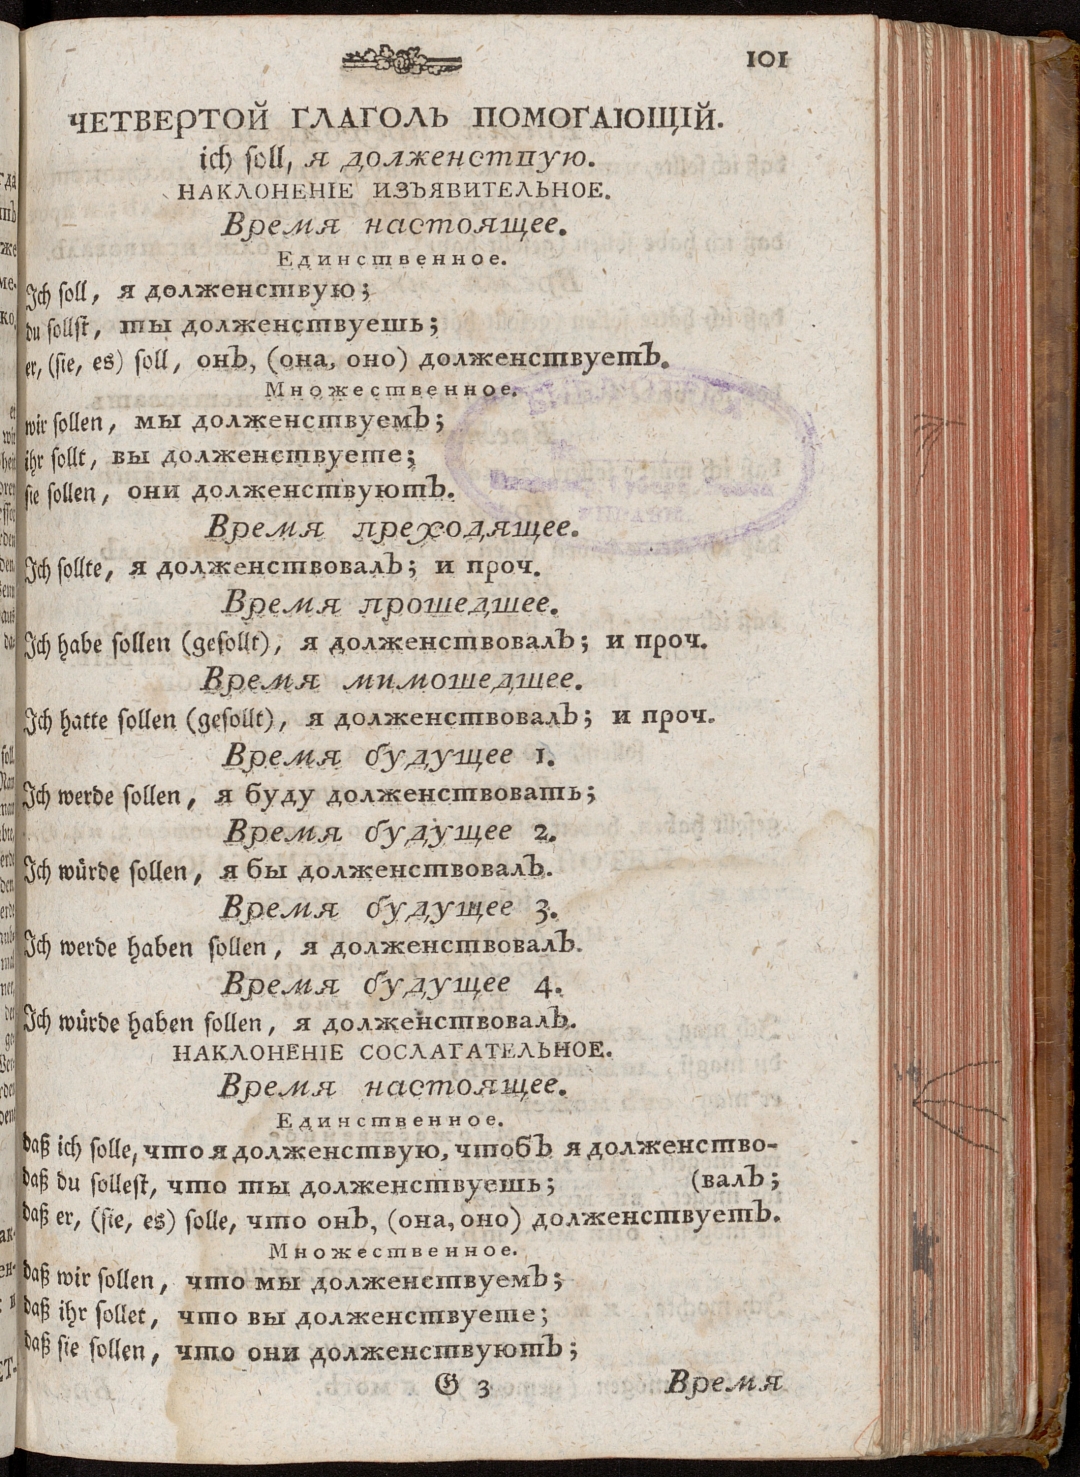 101
ЧЕТВЕРТОЙ ГЛАГОЛЬ ПОМОГАЮЩІЙ.
ich soll, я долженствую.
НАКЛОНЕНІЕ ИЗЪЯВИТЕЛЬНОЕ.
Время настоящее.
Единственное.
Ich soll, я долженствую;
du sollst, ты долженствуешь;
er, (sie, es) soll, онъ, (она, оно) долженствуетъ.
Множественное.
wir sollen, мы долженствуемъ;
ihr sollt, вы долженствуете;
sie sollen, они долженствуютъ.
Время преходящее.
Ich sollte, я долженствовалъ; и проч.
Время прошедшее.
Ich habe sollen (gesollt), я долженствовалъ; и проч.
Время мимошедшее.
Ich hatte sollen (gesollt), я долженствовалъ; и проч.
Время будущее 1.
Ich werde sollen, я буду долженствовать;
Время будущее 2.
Ich würde sollen, я бы долженствовалъ.
Время будущее 3.
Ich werde haben sollen, я долженствовалъ.
Время будущее 4.
Ich würde haben sollen, я долженствовалъ.
НАКЛОНЕНІЕ СОСЛАГАТЕЛЬНОЕ.
Время настоящее.
Единственное.
daß ich solle, что я долженствую, чтобъ я долженство-
daß du sollest, что ты долженствуешь; (валъ;
daß er, (sie, es) solle, что онъ, (она, оно) долженствуетъ.
Множественное.
daß wir sollen, что мы долженствуемъ;
daß ihr sollet, что вы долженствуете;
daß sie sollen, что они долженствуютъ;
G 3 Время